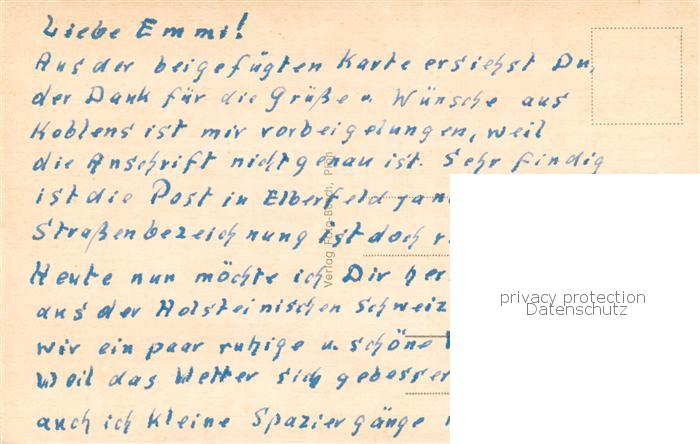 Liebe Emmi!
Aus der beigefügten Karte ersiehst Du,
der Dank für die Grüße u. Wünsche aus
Koblens ist mir vorbeigelungen, weil
die Anschrift nicht genau ist. Sehr findig
ist die Post in Elberfeld
Straßenbezeichnung ist doch
Heute nun möchte ich Dir
aus der Holsteinischen Schweiz
wir ein paar ruhige u. schöne
Weil das Wetter sich
auch ich kleine Spaziergänge
Verlag Foto-Busch, Plön
privacy protection
Datenschutz